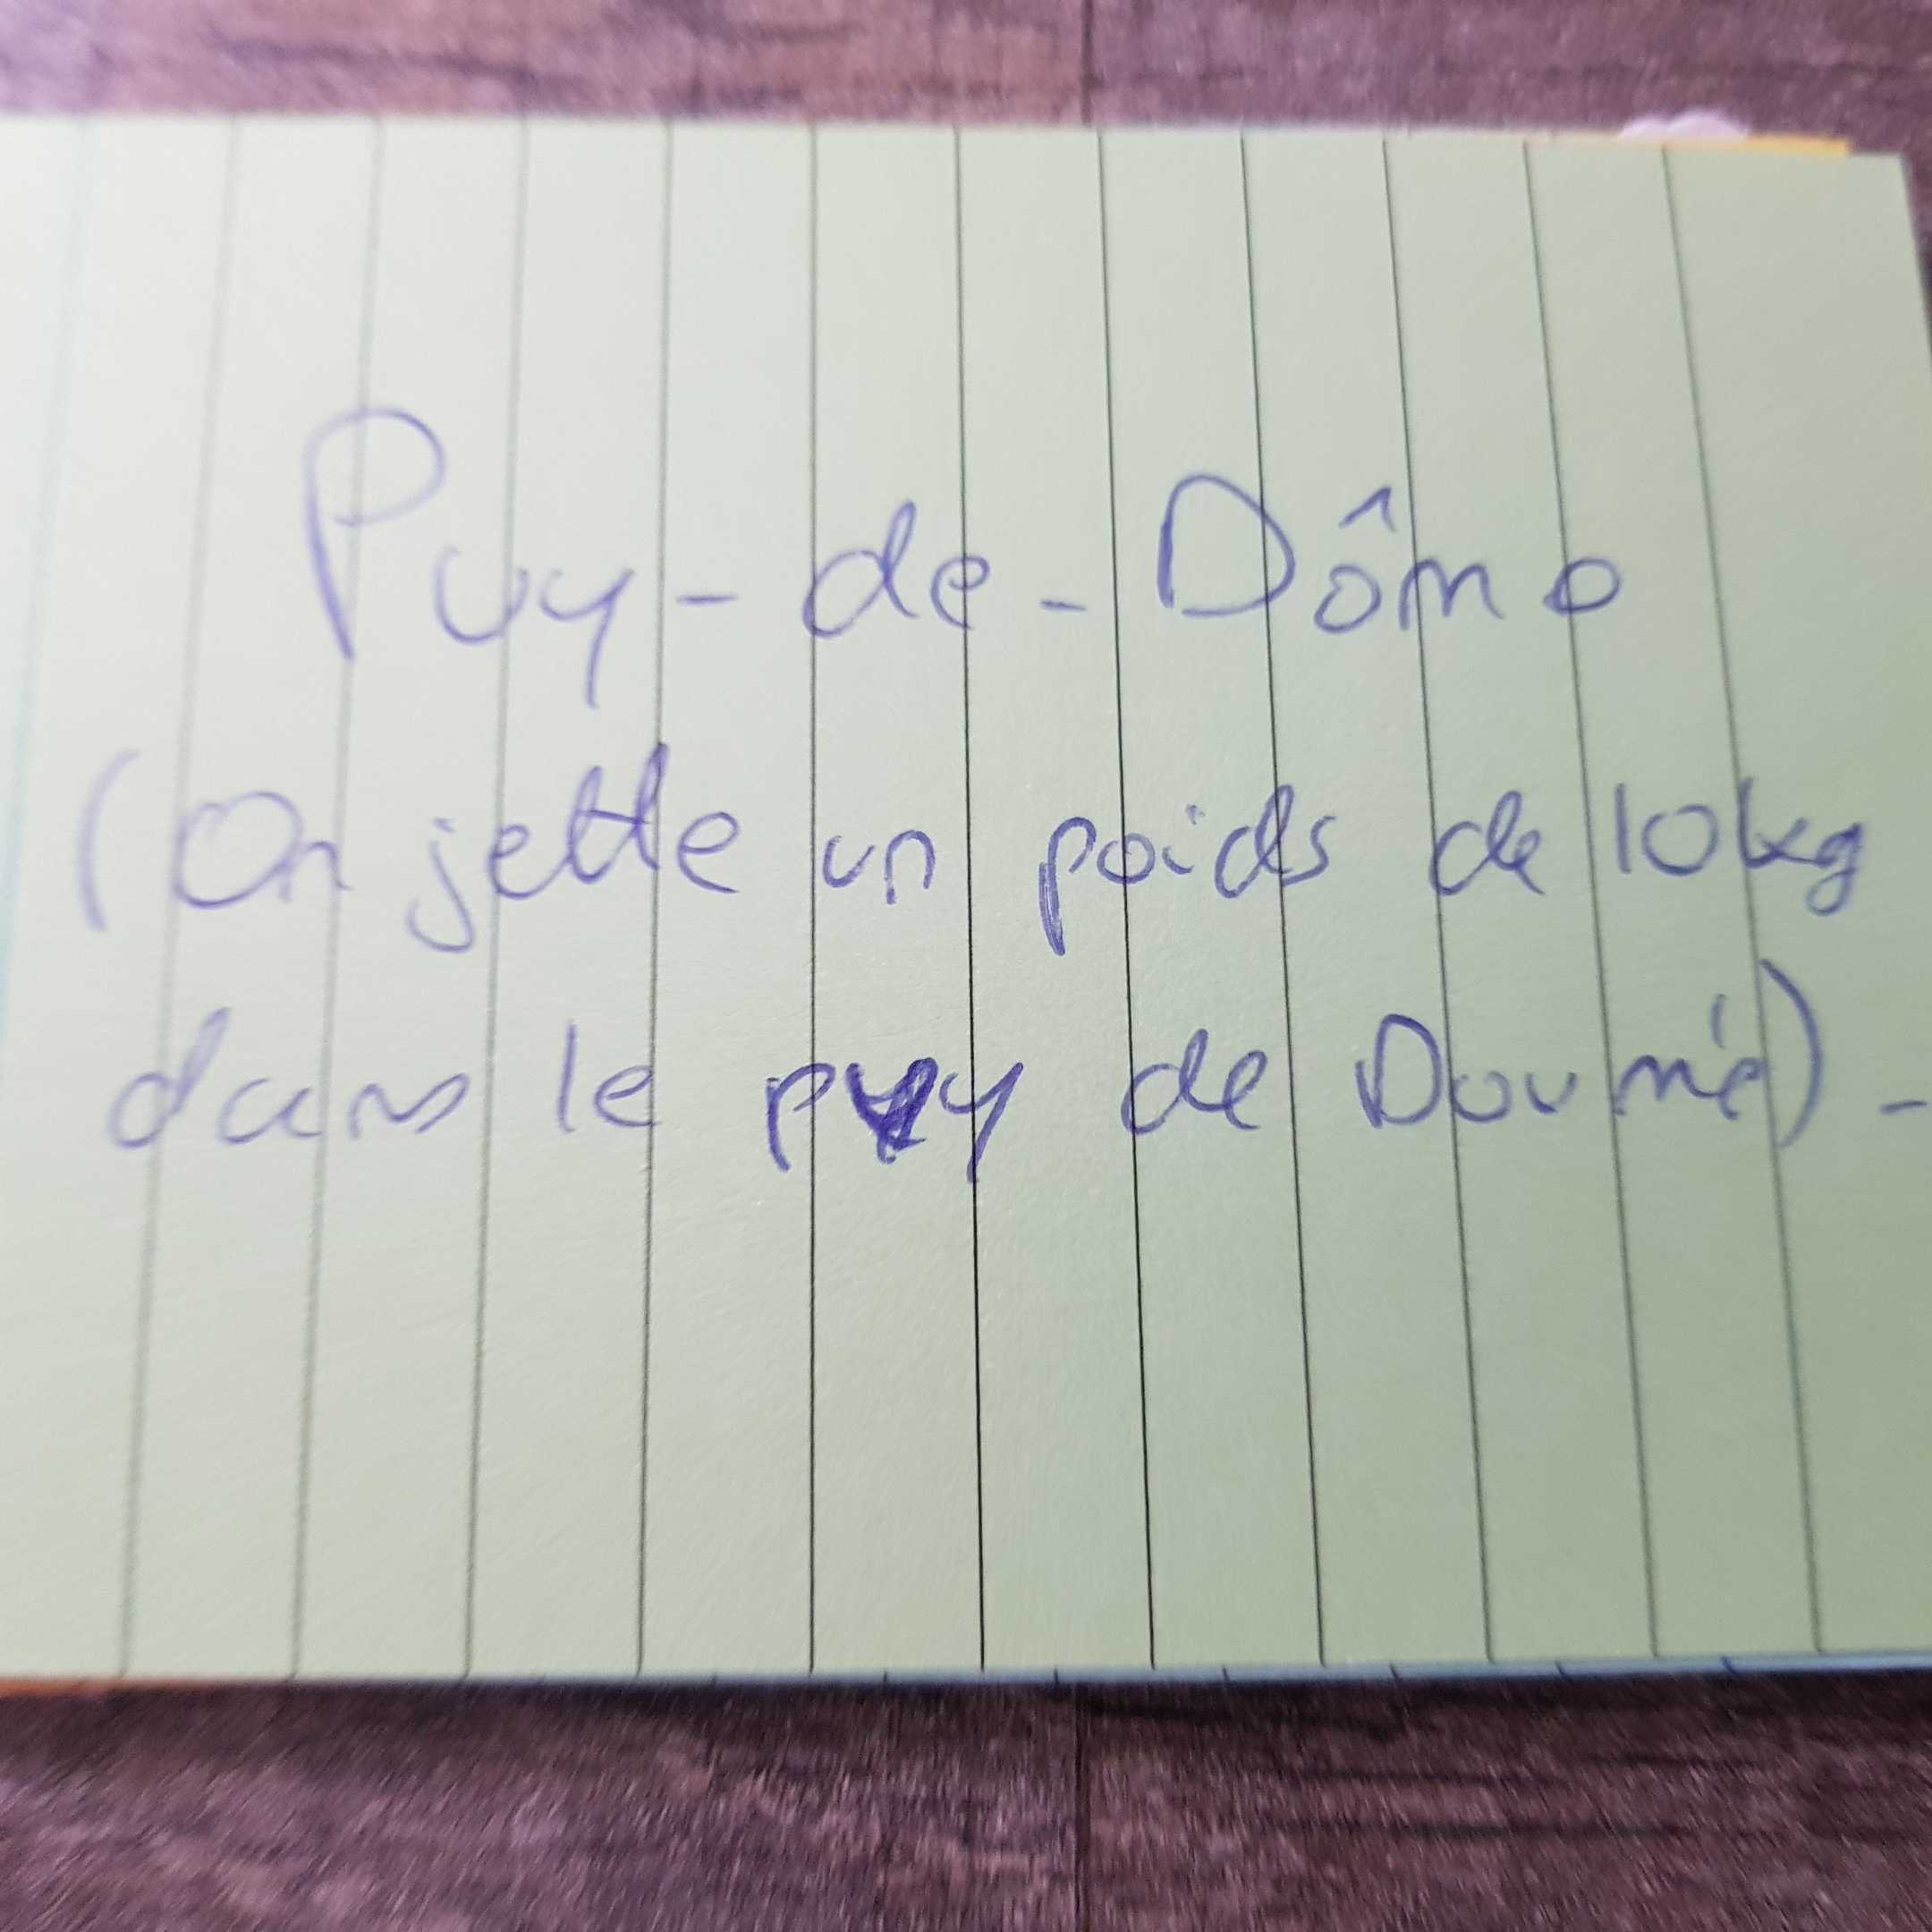 Puy-de-Dôme
(On jette un poids de 10kg
dans le puy de Doumé)-